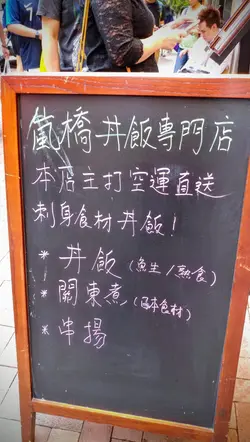 嵐橋丼飯專門店
本店主打空運直送
刺身食材丼飯!
* 丼飯(魚生/熟食)
* 關東煮(日本食材)
* 串揚